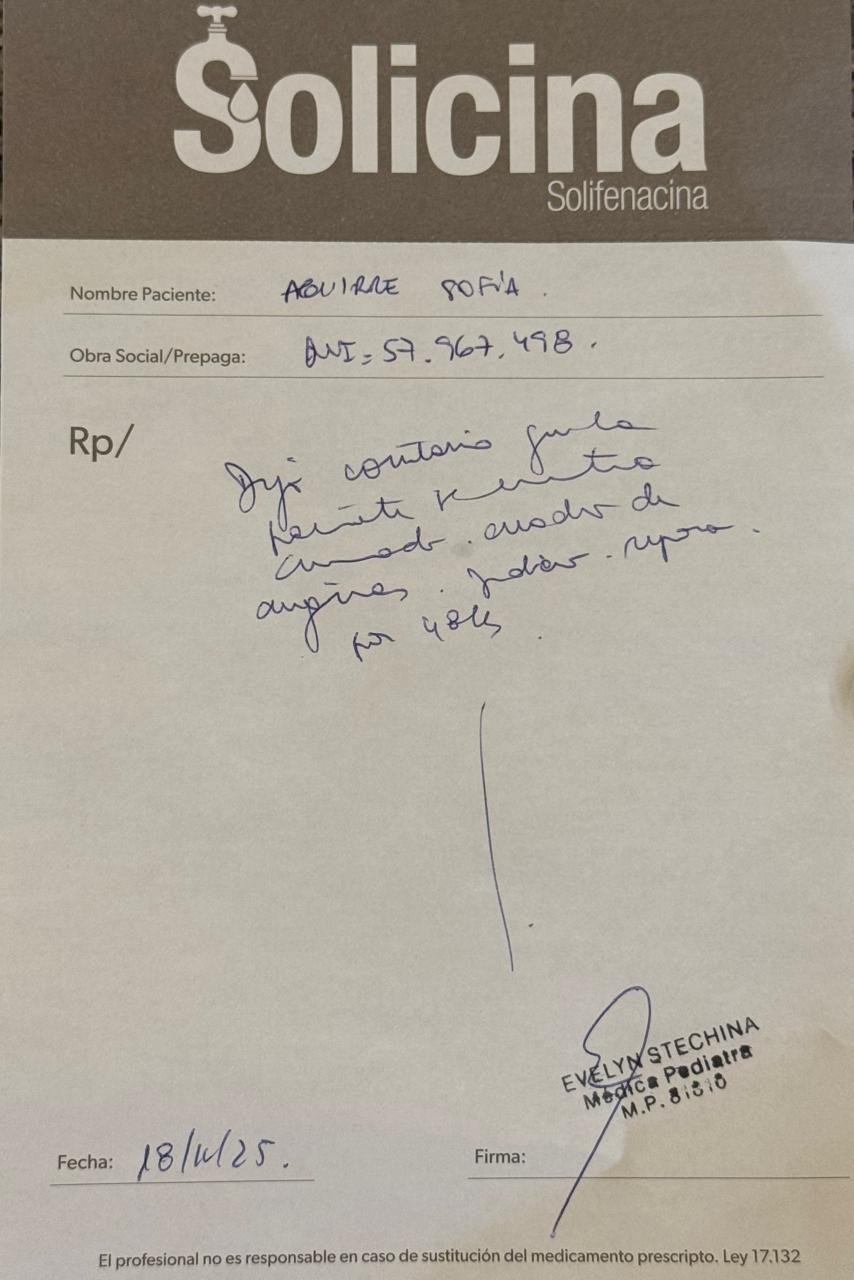 Solicina
Solifenacina
Nombre Paciente: AGUIRRE SOFÍA.
Obra Social/Prepaga: DNI = 57.967.498.
Rp/
Dejo constancia que la
paciente
cuadro de
anginas. Indico. reposo.
por 48hs.
EVELYN STECHINA
Médica Pediatra
M.P.
Fecha: 18/11/25.
Firma:
El profesional no es responsable en caso de sustitución del medicamento prescripto. Ley 17.132